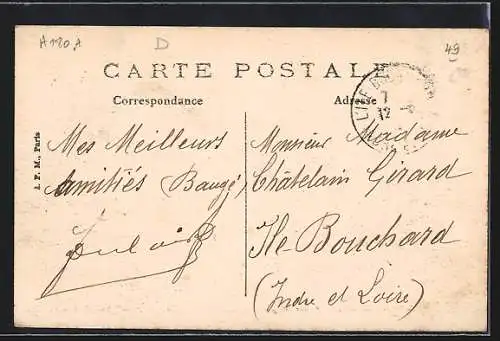 A 1180 A
D
49
CARTE POSTALE
Correspondance
Adresse
I. P. M., Paris
L'ILE
7
12
Mes Meilleurs
Amitiés (Baugé)
Monsieur Madame
Châtelain Girard
Ile-Bouchard
(Indre et Loire)